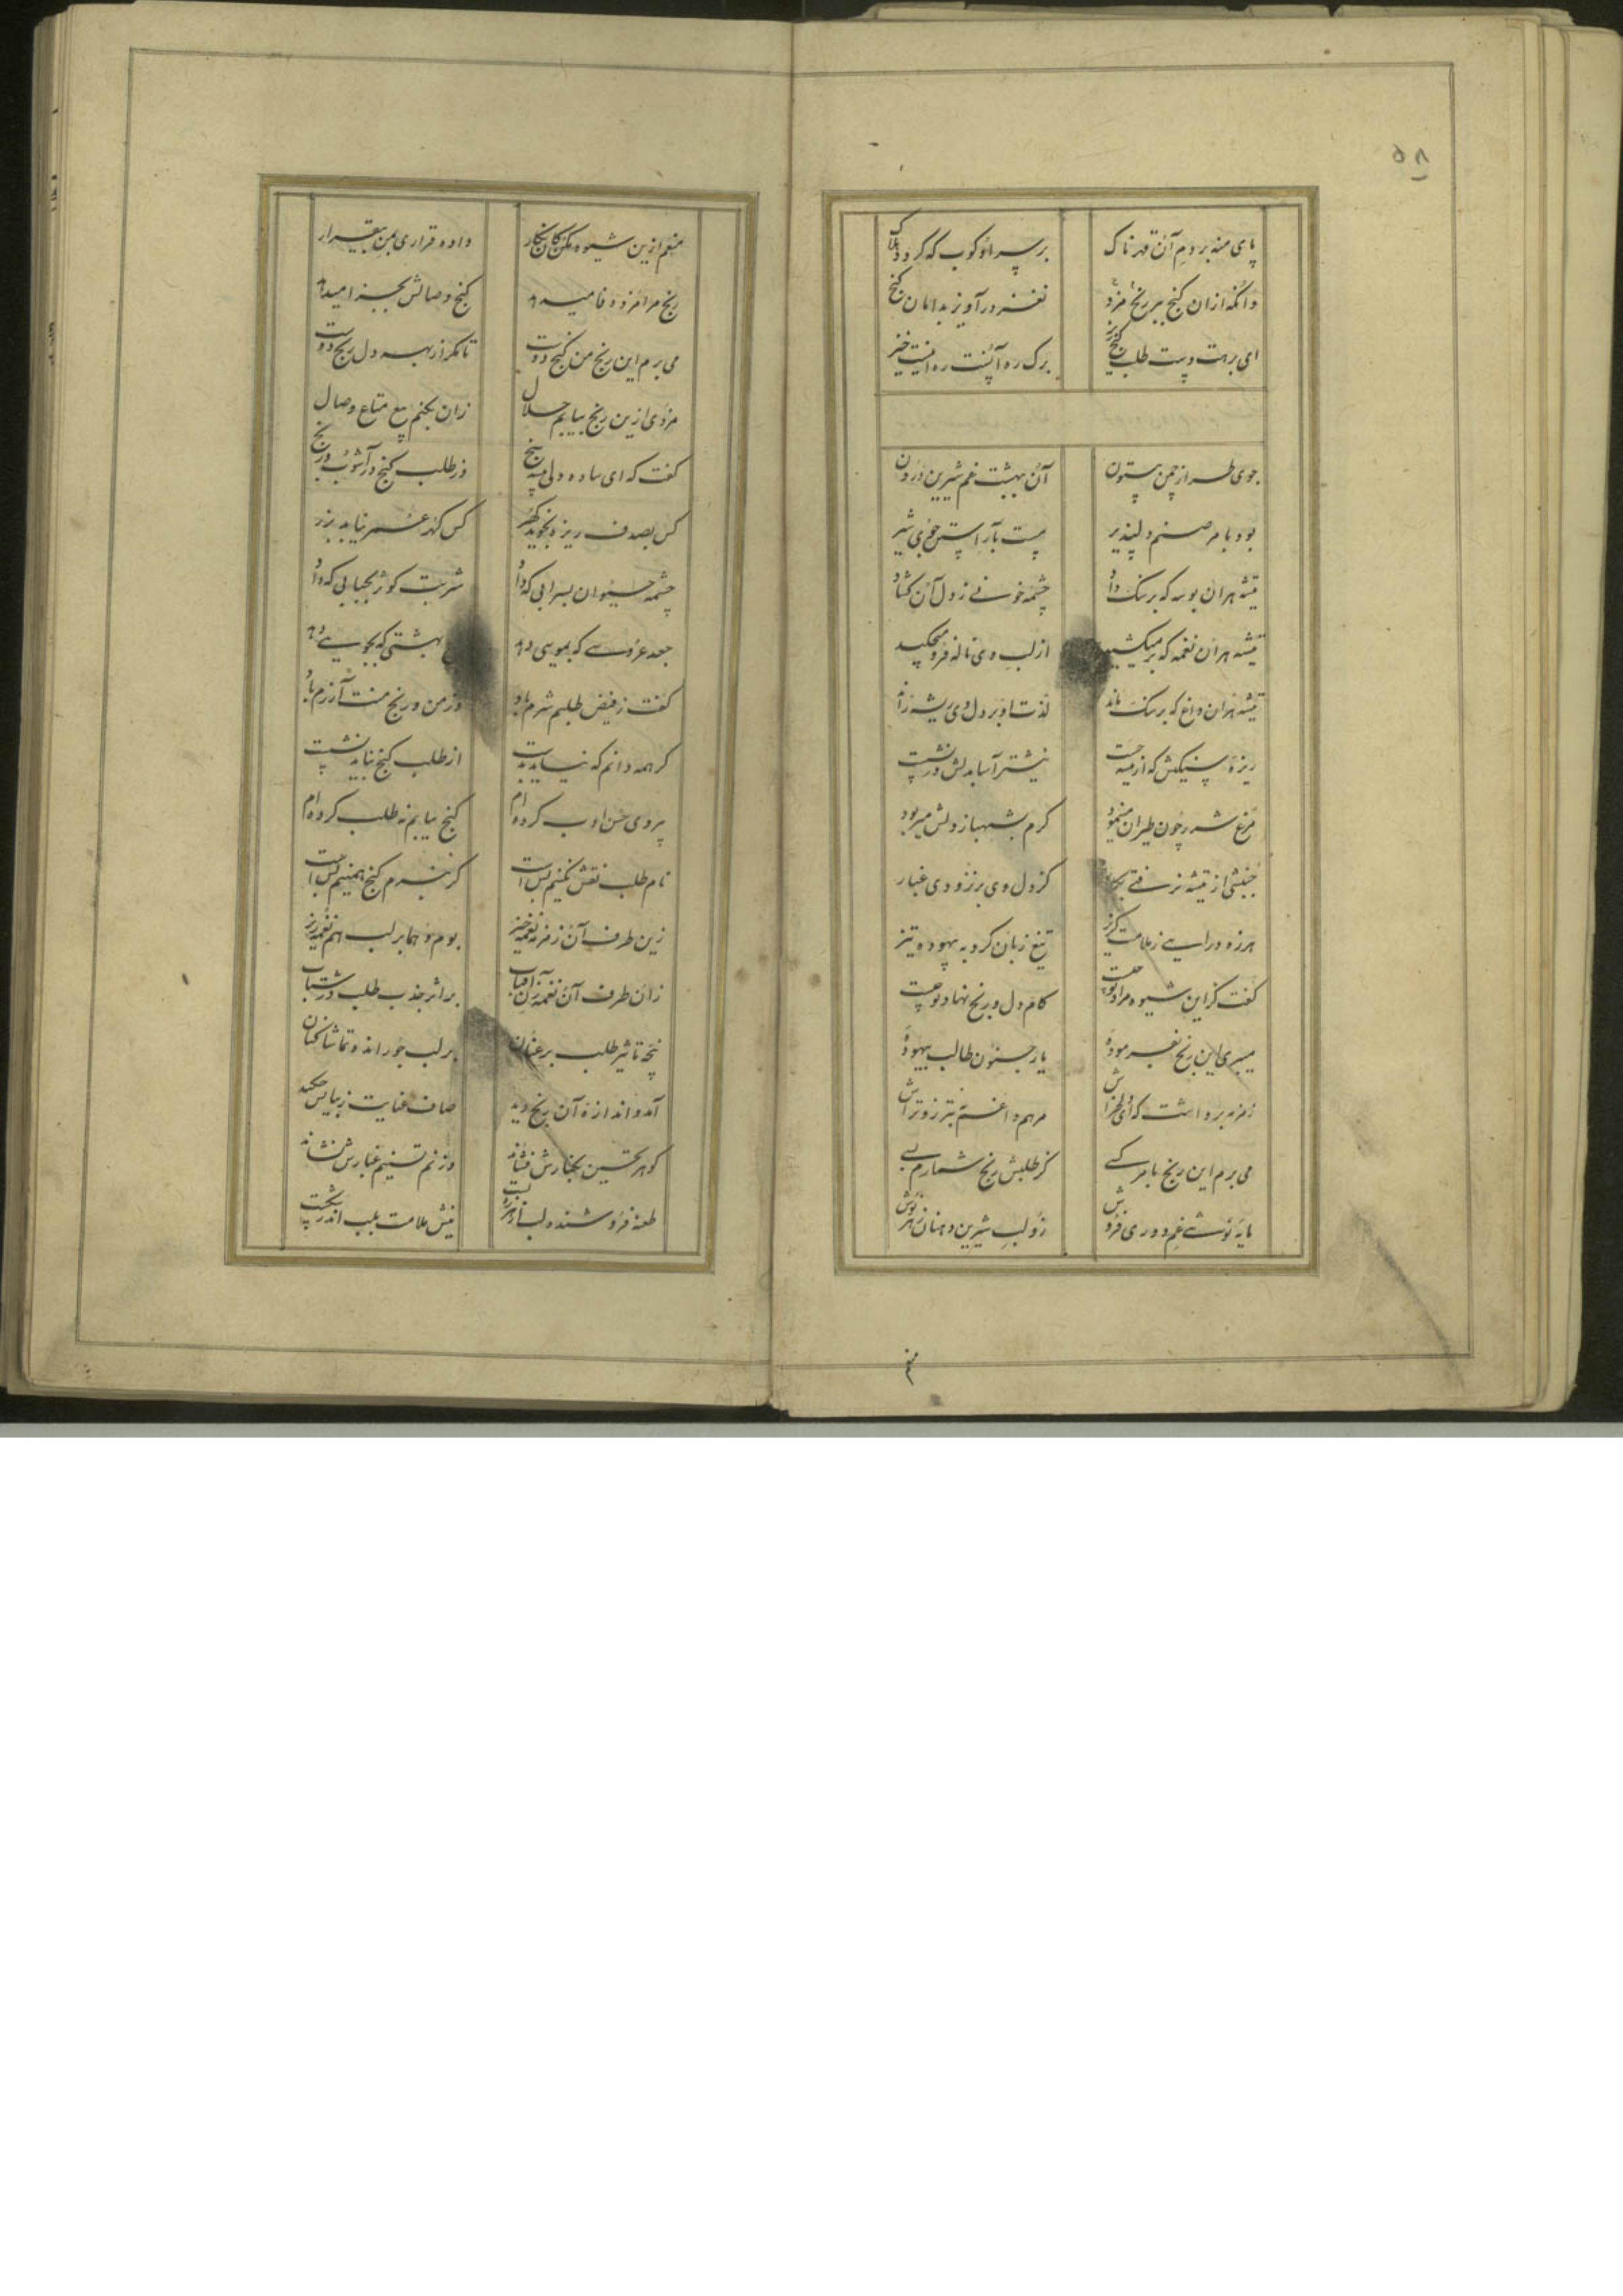 ۵۸
پای منه بر دم آن قهرناک بر سر او کوب که گردد هلاک
وانگه ازان گنج ببر رنج مزد نغز درآویز بدامان گنج
ای برهت دست طلب گنج ریز برگ ره آنست ره اینست خیز
جوی طراز چمن بیستون آن ببهشت غم شیرین درون
بود بامر صنم دلپذیر مست بآراستن جوی شیر
تیشه هران بوسه که بر سنگ داد چشمه خونی ز دل آن گشاد
تیشه هران نغمه که بر میکشید از لب وی ناله فرو میچکید
تیشه هران داغ که بر سنگ ماند لذت او بر دل وی ریشه راند
ریزه سنگش که از تیشه جست نیشتر آسا بدلش در نشست
مرغ شرر چون طیران مینمود گرم بشهباز دلش میربود
جنبشی از تیشه نرفتی بکار کز دل وی بر نزدی غبار
هرزه درایی ز ملامت گریز تیغ زبان کرد به بیهوده تیز
گفت کزین شیوه مراد تو چیست کام دل و رنج نهاد تو چیست
میبری این رنج بفرموده یار جنون طالب بیهوده
زمزمه برداشت که ای دلخراش مرهم داغ غم تبرزو تراش
می برم این رنج بامر کسی کز طلبش رنج شمارم بسی
مایه نوشی غم دوری فروش زو لب شیرین دهنان زهر نوش
منعم
منعم ازین شیوه مکن کان نگار داده قراری بمن بیقرار
رنج مرا مزد وفا میدهد گنج وصالش بجزا میدهد
می برم این رنج من گنج دوست تا مگر از بهر دل رنج دوست
مزدی ازین رنج بیابم حلال زان بکنم بیع متاع وصال
گفت که ای ساده دلی پیشه سنج در طلب گنج در آشوب رنج
کس بصدف ریزه نجوید گهر کس گهر عمر نیابد بزر
چشمه حیوان بسرابی که داد شربت کوثر بحبابی که داد
جعد عروسی که بمویی دهد بهشتی که بجویی دهد
گفت ز فیض طلبم شرم باد وز من و رنج منت آزرم باد
گر همه دانم که نیاید بدست از طلب گنج نباید نشست
پیروی حسن ادب کرده‌ام گنج نیابم نه طلب کرده‌ام
نام طلب نقش نگینم بس است گر نبرم گنج همینم بس است
زین طرف آن زمزمه نغمه خیز بوم و هما بر لب هم نغمه ریز
زان طرف آن نغمه زن آفتاب بر اثر جذب طلب در شتاب
پنجه تاثیر طلب بر عنان بر لب جو راند و تماشا کنان
آمد و اندازه آن رنج دید صاف عنایت ز بیانش چکید
گوهر تحسین بکنارش فشاند وز نم تسنیم غبارش نشاند
طعنه فروشنده لب نیش ملامت بلب اندر شکست